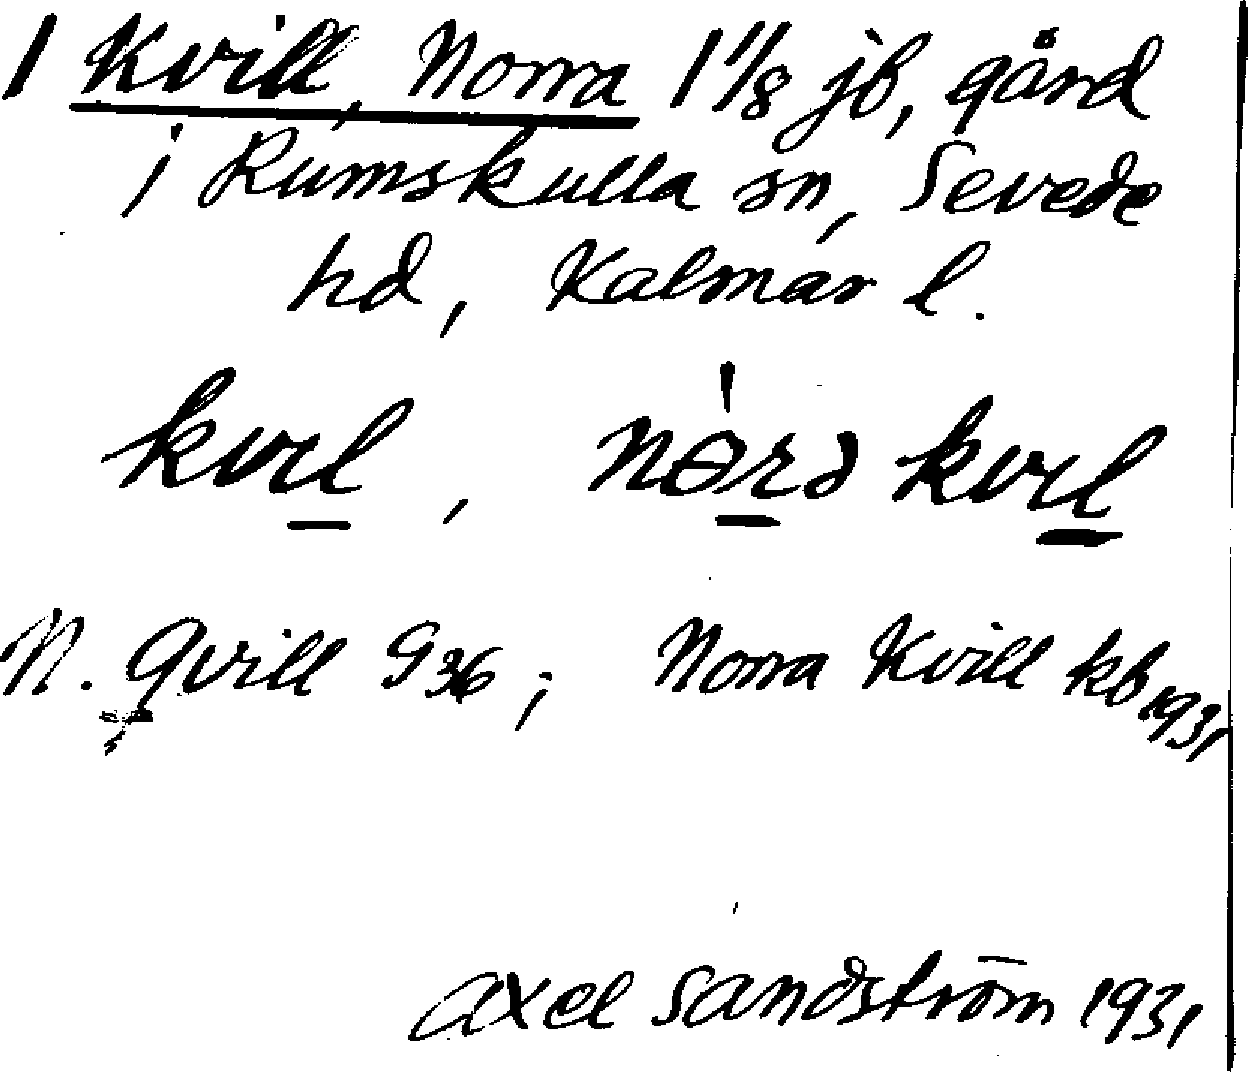 1 Kvill, Norra 1 1/8 jb, gård
i Rumskulla sn, Sevede
hd, Kalmar l.
kvɪl, nɵrə kvɪl
N. Qvill G 36; Norra Kvill kb 1931
Axel Sandström 1931